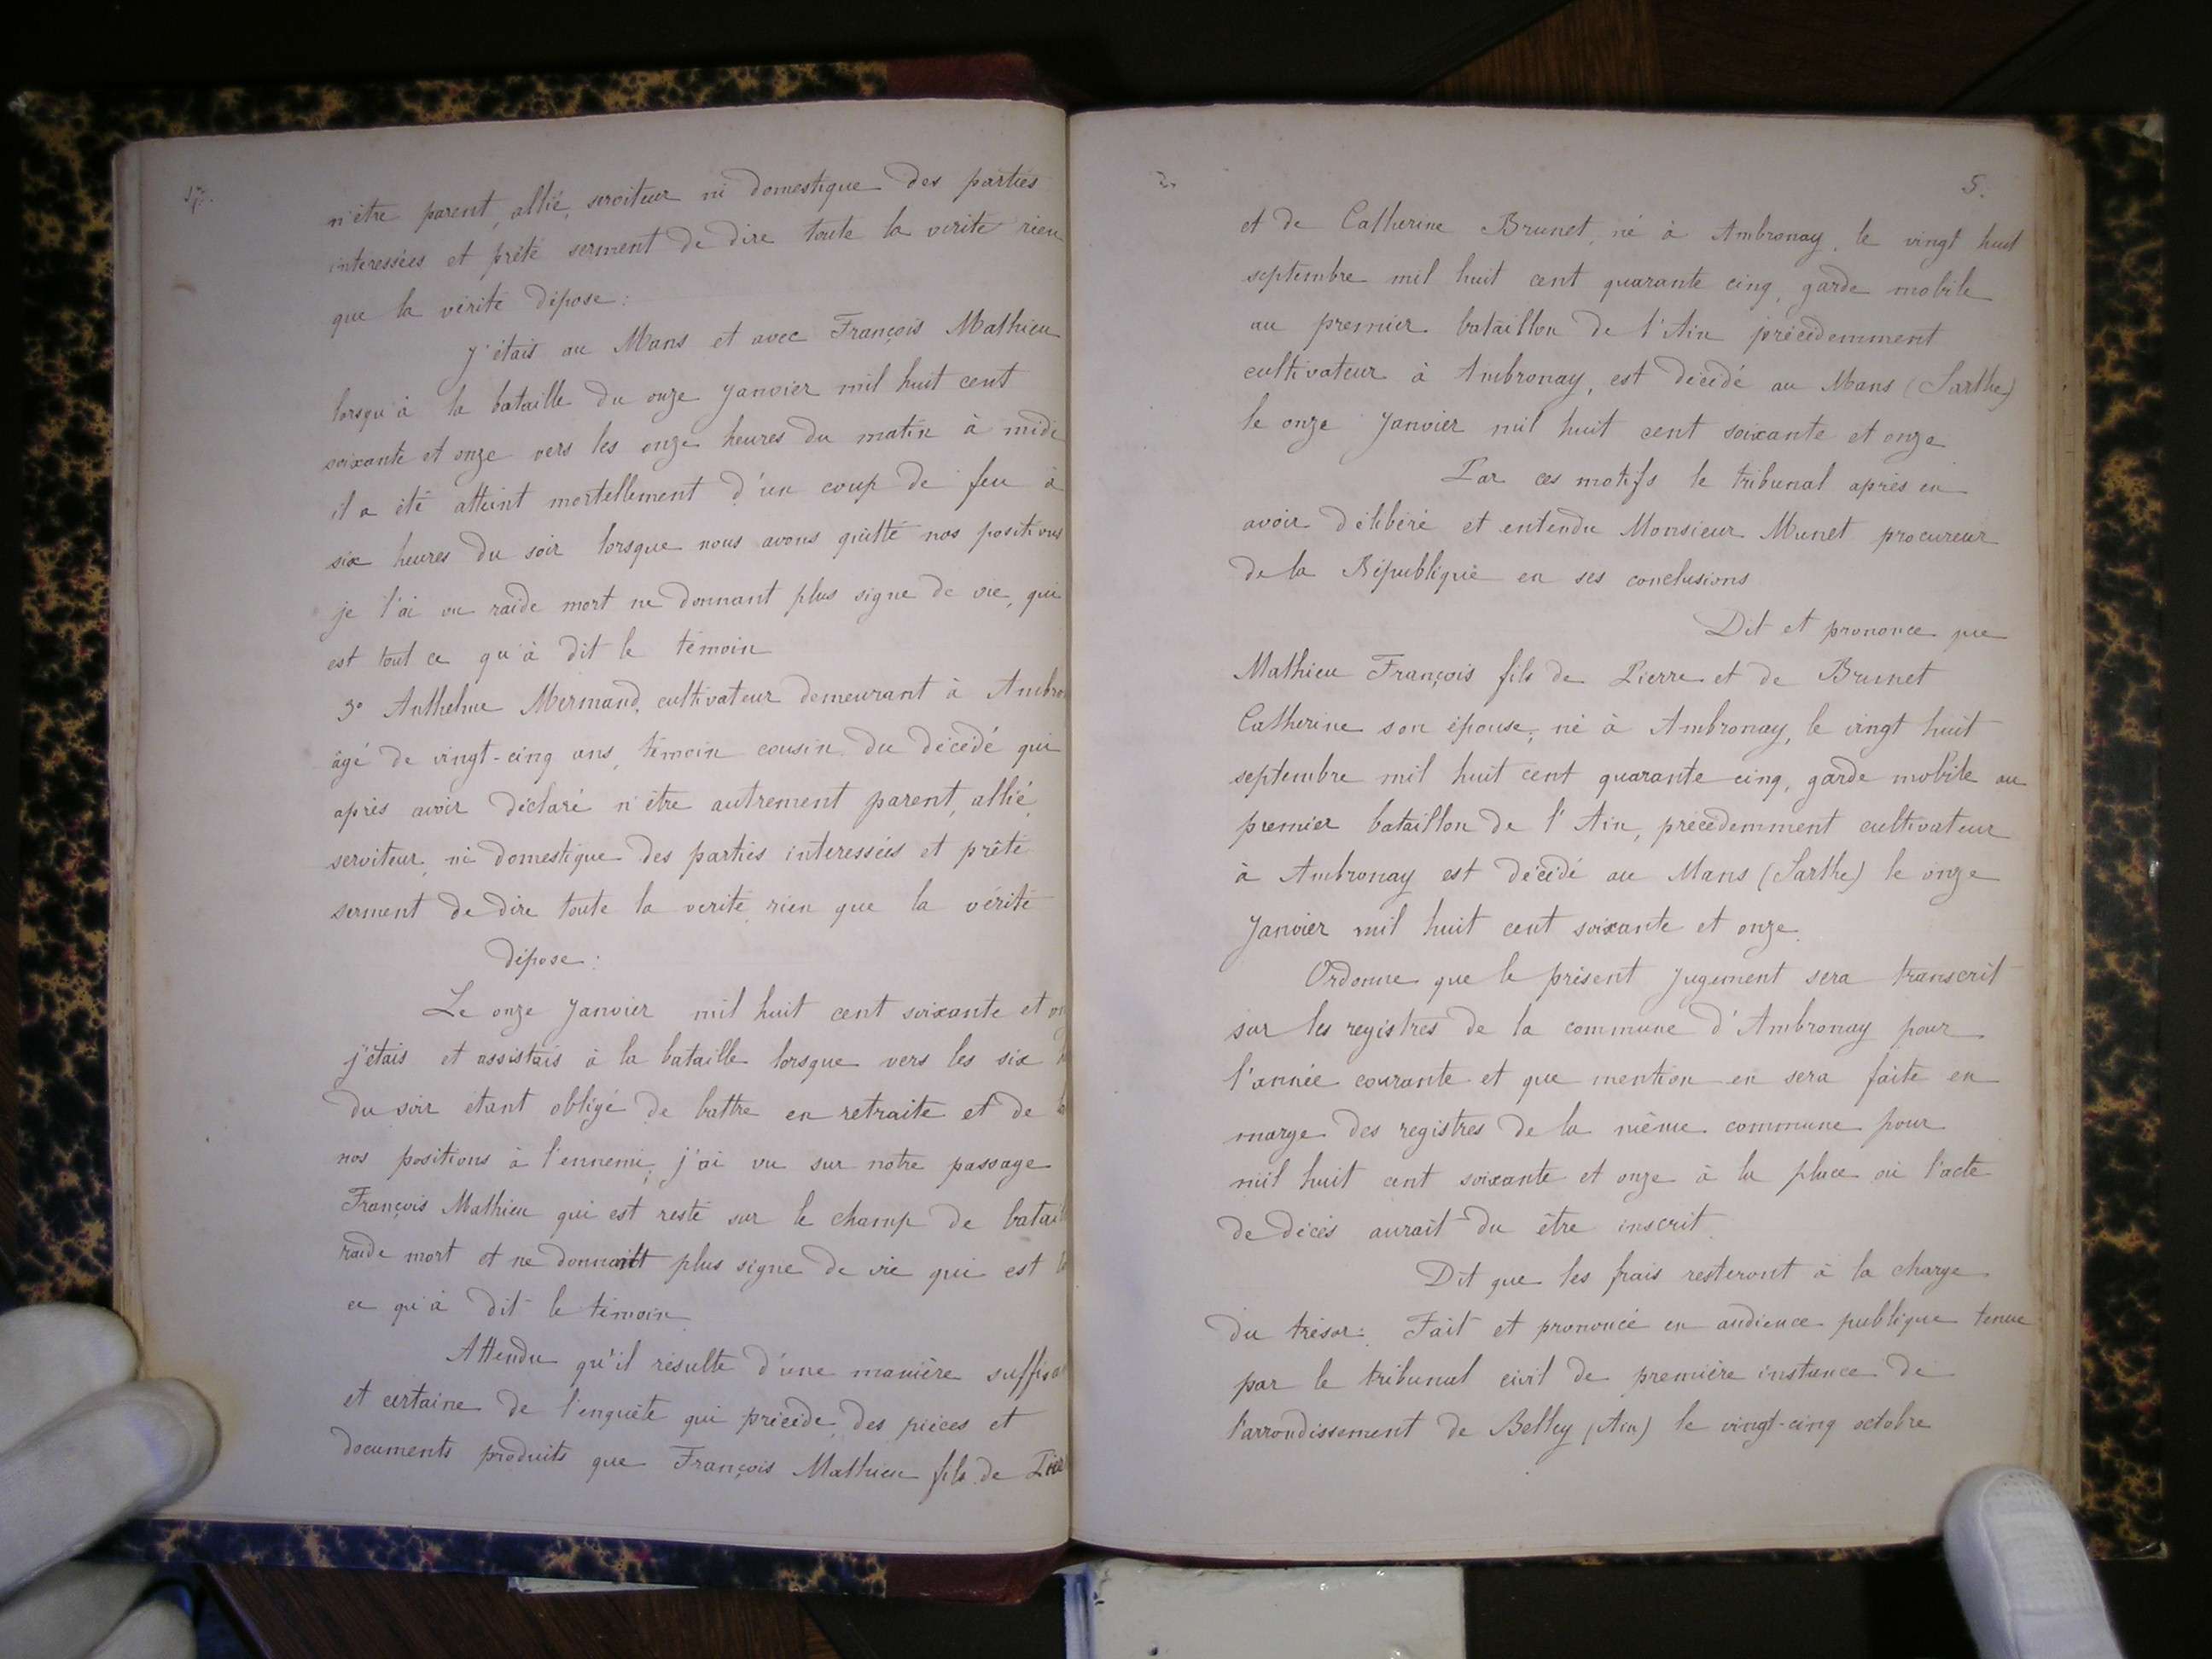 n'être parent, allié, serviteur ni domestique des parties
interessées et prêté serment de dire toute la vérité rien
que la vérité dépose :
J'étais au Mans et avec François Mathieu
lorsqu'à la bataille du onze Janvier mil huit cent
soixante et onze vers les onze heures du matin à midi
il a été atteint mortellement d'un coup de feu à
six heures du soir lorsque nous avons quitté nos positions
je l'ai vu raide mort ne donnant plus signe de vie, qui
est tout ce qu'à dit le témoin
3° Anthelme Mermand, cultivateur demeurant à Ambro
âgé de vingt-cinq ans, témoin cousin du décédé qui
après avoir déclaré n'être autrement parent, allié,
serviteur, ni domestique des parties interessées et prêté
serment de dire toute la verité rien que la vérité
dépose :
Le onze Janvier mil huit cent soixante et on
j'étais et assistais à la bataille lorsque vers les six
du soir étant obligé de battre en retraite et de
nos positions à l'ennemi, j'ai vu sur notre passage
François Mathieu qui est resté sur le champ de batail
raide mort et ne donnant plus signe de vie qui est
ce qu'à dit le témoin
Attendu qu'il résulte d'une manière suffisa
et certaine de l'enquête qui précède, des pièces et
documents produits que François Mathieu fils de Pier
5.
et de Catherine Brunet, né à Ambronay, le vingt huit
septembre mil huit cent quarante cinq, garde mobile
au premier bataillon de l'Ain précédemment
cultivateur à Ambronay, est décédé au Mans (Sarthe)
le onze Janvier mil huit cent soixante et onze
Par ces motifs le tribunal après en
avoir délibéré et entendu Monsieur Munet procureur
de la République en ses conclusions
Dit et prononce que
Mathieu François fils de Pierre et de Brunet
Catherine son épouse, né à Ambronay, le vingt huit
septembre mil huit cent quarante cinq, garde mobile au
premier bataillon de l'Ain, précédemment cultivateur
à Ambronay est décédé au Mans (Sarthe) le onze
Janvier mil huit cent soixante et onze.
Ordonne que le présent Jugement sera transcrit
sur les registres de la commune d'Ambronay pour
l'année courante et que mention en sera faite en
marge des registres de la même commune pour
mil huit cent soixante et onze à la place où l'acte
de décès aurait du être inscrit.
Dit que les frais resteront à la charge
du trésor : Fait et prononcé en audience publique tenue
par le tribunal civil de première instance de
l'arrondissement de Belley (Ain) le vingt-cinq octobre